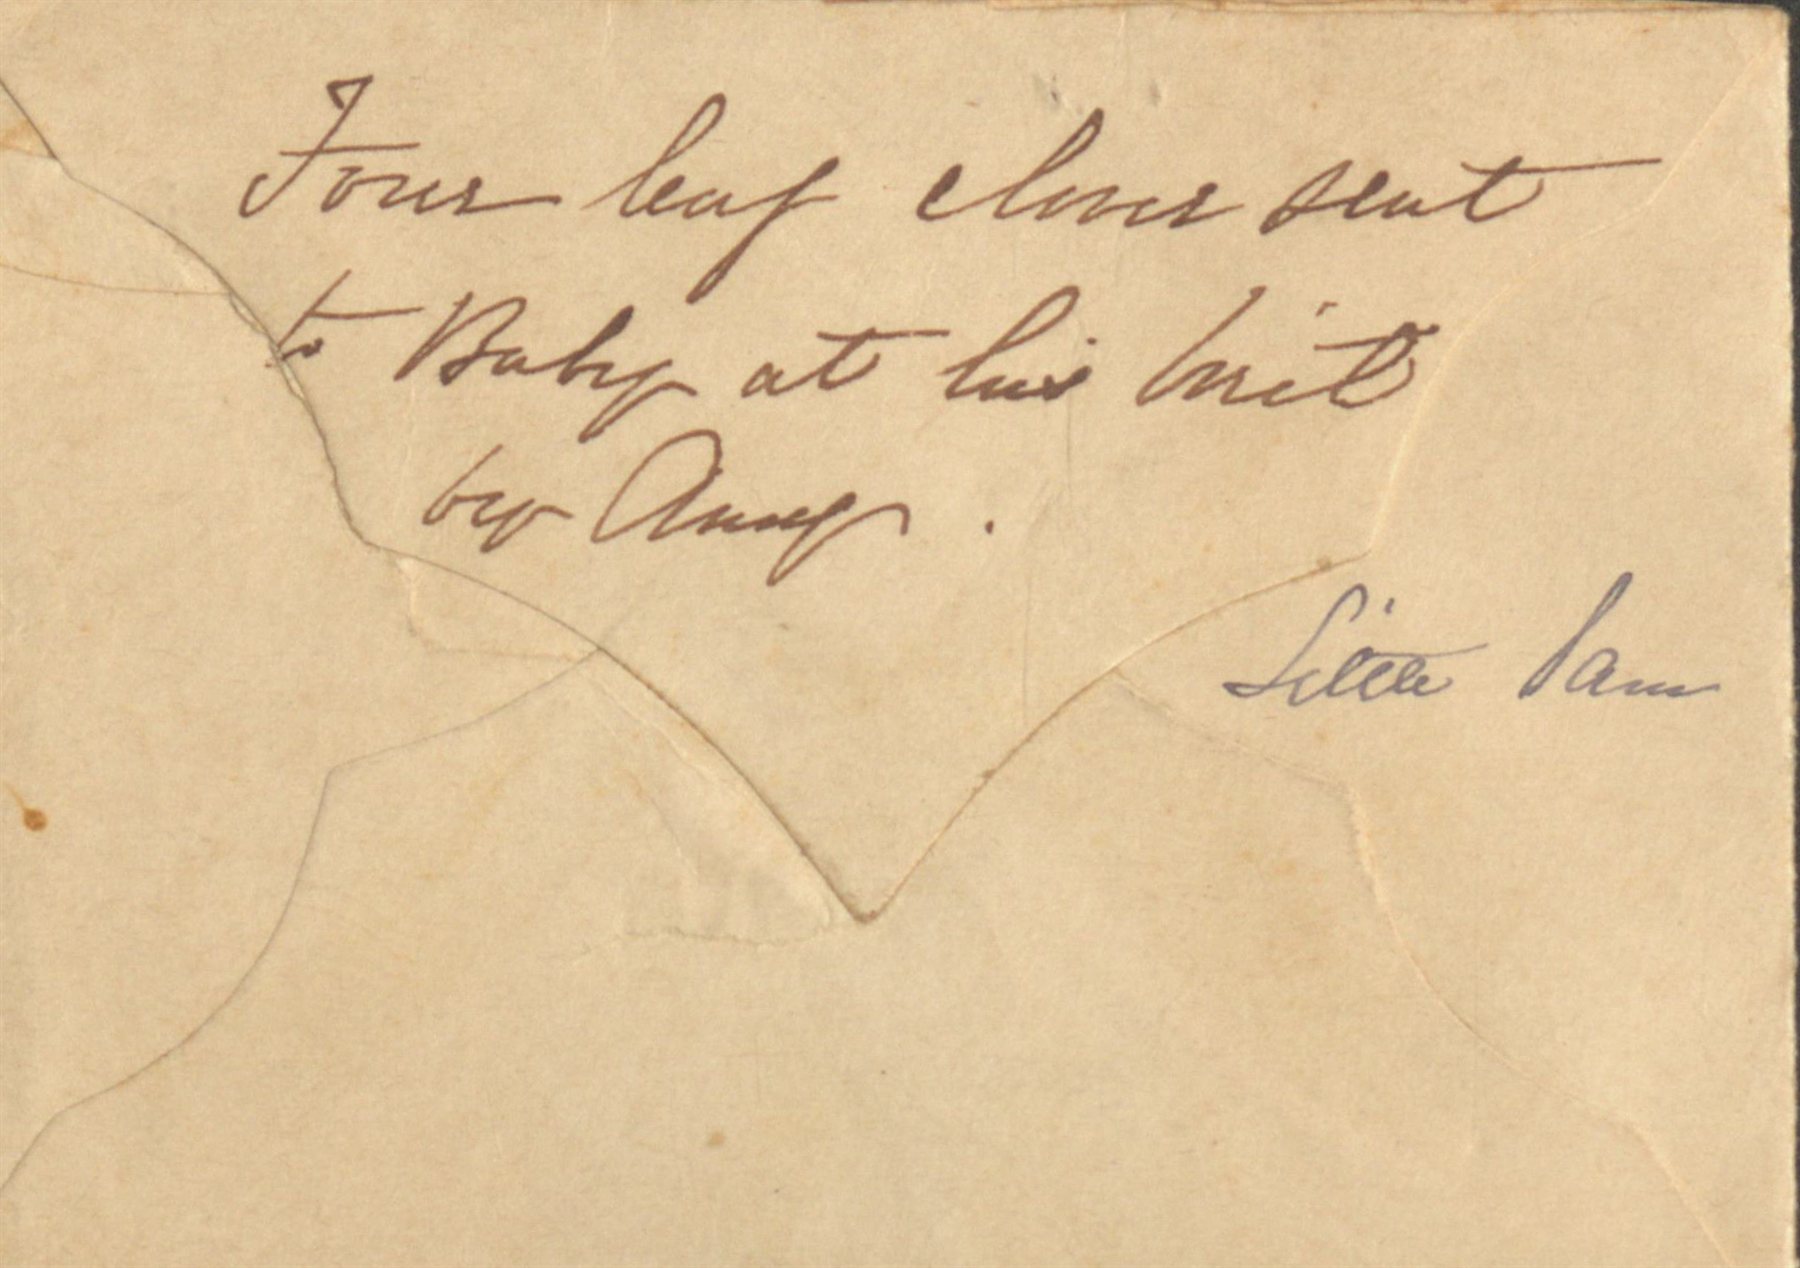 Four leaf clover sent
to Baby at his birth
by Amy.
Little Sam